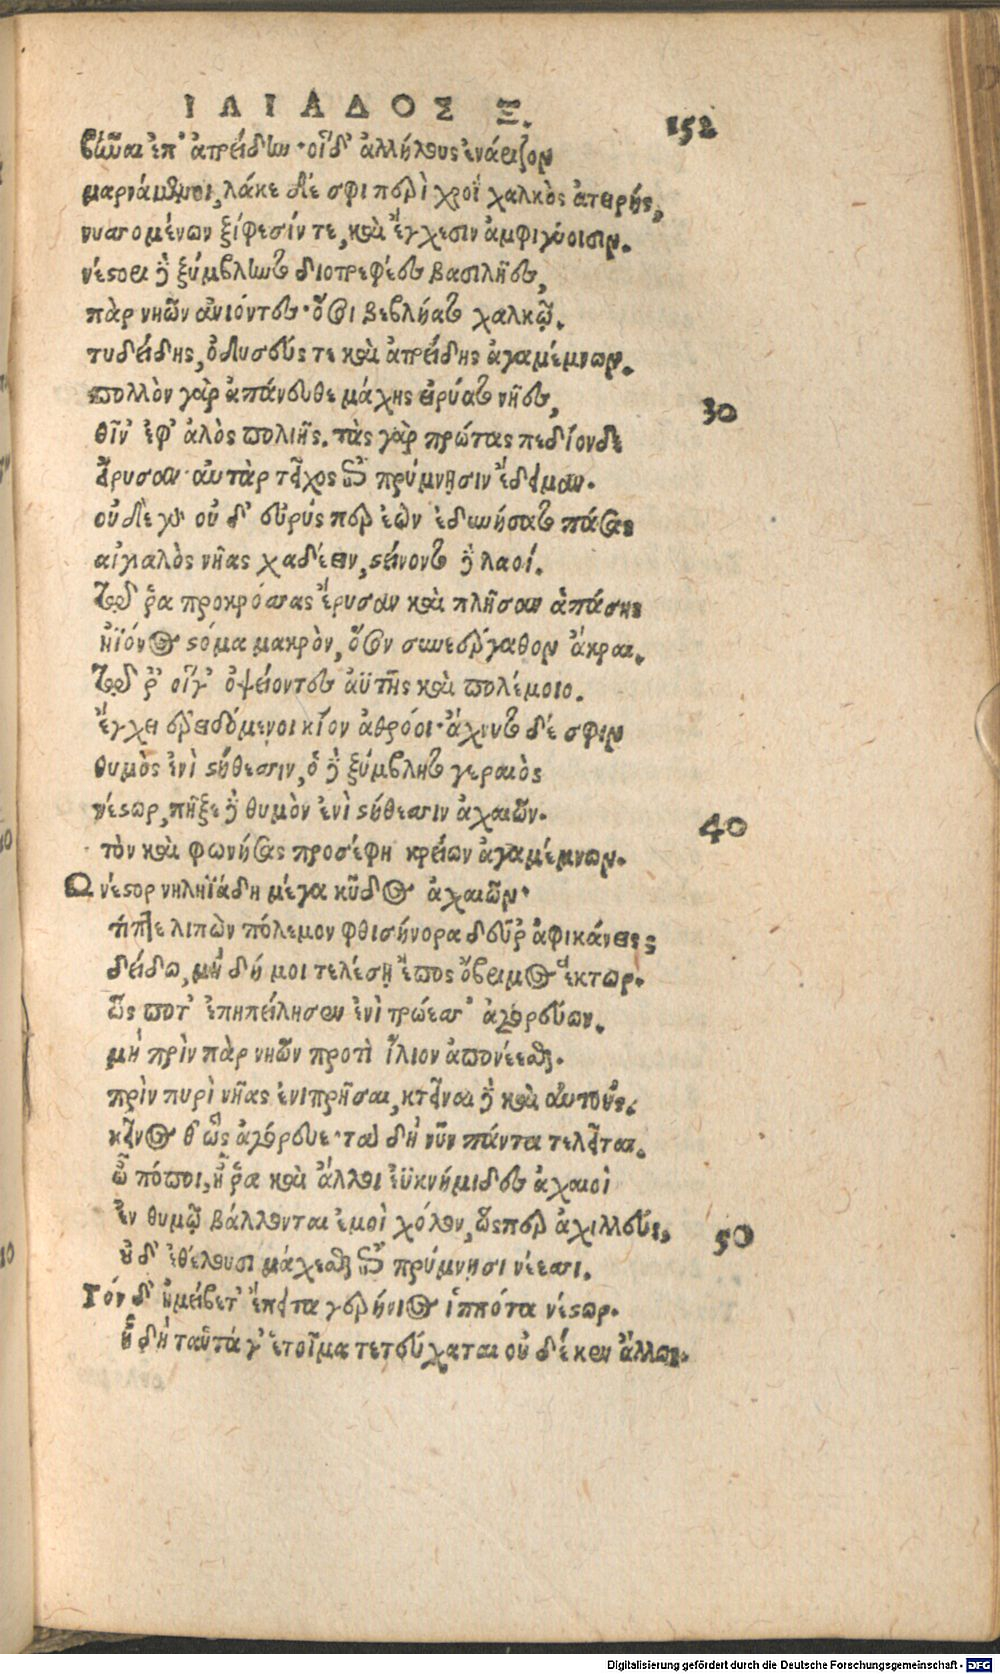 ΙΛΙΑΔΟΣ Ξ.
152
βῆναι ἐπ' ἀτρείδην· οἱ δ' ἀλλήλους ἐνάριζον
μαρνάμενοι, λάκε δέ σφι περὶ χροῒ χαλκὸς ἀτειρής,
νυσσομένων ξίφεσίν τε, καὶ ἔγχεσιν ἀμφιγύοισιν.
νέστορι δὲ ξύμβληντο διοτρεφέες βασιλῆες,
πὰρ νηῶν ἀνιόντες· ὅσοι βεβλήατο χαλκῷ.
τυδείδης, ὀδυσσεύς τε καὶ ἀτρείδης ἀγαμέμνων.
πολλὸν γὰρ ἀπάνευθε μάχης εἰρύατο νῆες,
30
θῖν' ἐφ' ἁλὸς πολιῆς. τὰς γὰρ πρώτας πεδίονδε
εἴρυσαν· αὐτὰρ τεῖχος ἐπὶ πρύμνῃσιν ἔδειμαν.
οὐδὲ γὰρ οὐδ' εὐρύς περ ἐὼν ἐδυνήσατο πάσας
αἰγιαλὸς νῆας χαδέειν, στείνοντο δὲ λαοί.
τῷ ῥα προκρόσσας ἔρυσαν καὶ πλῆσαν ἁπάσης
ἠϊόνος στόμα μακρὸν, ὅσον συνεέργαθον ἄκραι.
τῷ ῥ' οἵγ' ὀψείοντες ἀϋτῆς καὶ πολέμοιο.
ἔγχει ἐρειδόμενοι κίον ἀθρόοι· ἄχνυτο δέ σφιν
θυμὸς ἐνὶ στήθεσσιν, ὁ δὲ ξύμβλητο γεραιὸς
νέστωρ, πῆξε δὲ θυμὸν ἐνὶ στήθεσσιν ἀχαιῶν.
40
τὸν καὶ φωνήσας προσέφη κρείων ἀγαμέμνων.
Ω νέστορ νηληϊάδη μέγα κῦδος ἀχαιῶν·
τίπτε λιπὼν πόλεμον φθισήνορα δεῦρ' ἀφικάνεις;
δείδω, μὴ δή μοι τελέσῃ ἔπος ὄβριμος ἕκτωρ.
ὥς ποτ' ἐπηπείλησεν ἐνὶ τρώεσσ' ἀγορεύων.
μὴ πρὶν πὰρ νηῶν προτὶ ἴλιον ἀπονέεσθαι.
πρὶν πυρὶ νῆας ἐνιπρῆσαι, κτεῖναι δὲ καὶ αὐτούς.
κεῖνος θ' ὣς ἀγόρευε· τὰ δὴ νῦν πάντα τελεῖται.
ὢ πόποι, ἦ ῥα καὶ ἄλλοι ἐϋκνήμιδες ἀχαιοὶ
ἐν θυμῷ βάλλονται ἐμοὶ χόλον, ὥσπερ ἀχιλλεύς,
50
οὐδ' ἐθέλουσι μάχεσθαι ἐπὶ πρύμνησι νέεσσι.
Τόν δ' ἠμείβετ' ἔπειτα γερήνιος ἱππότα νέστωρ.
ἦ δὴ ταῦτά γ' ἑτοῖμα τετεύχαται οὐδέ κεν ἄλλως.
Digitalisierung gefördert durch die Deutsche Forschungsgemeinschaft - DFG